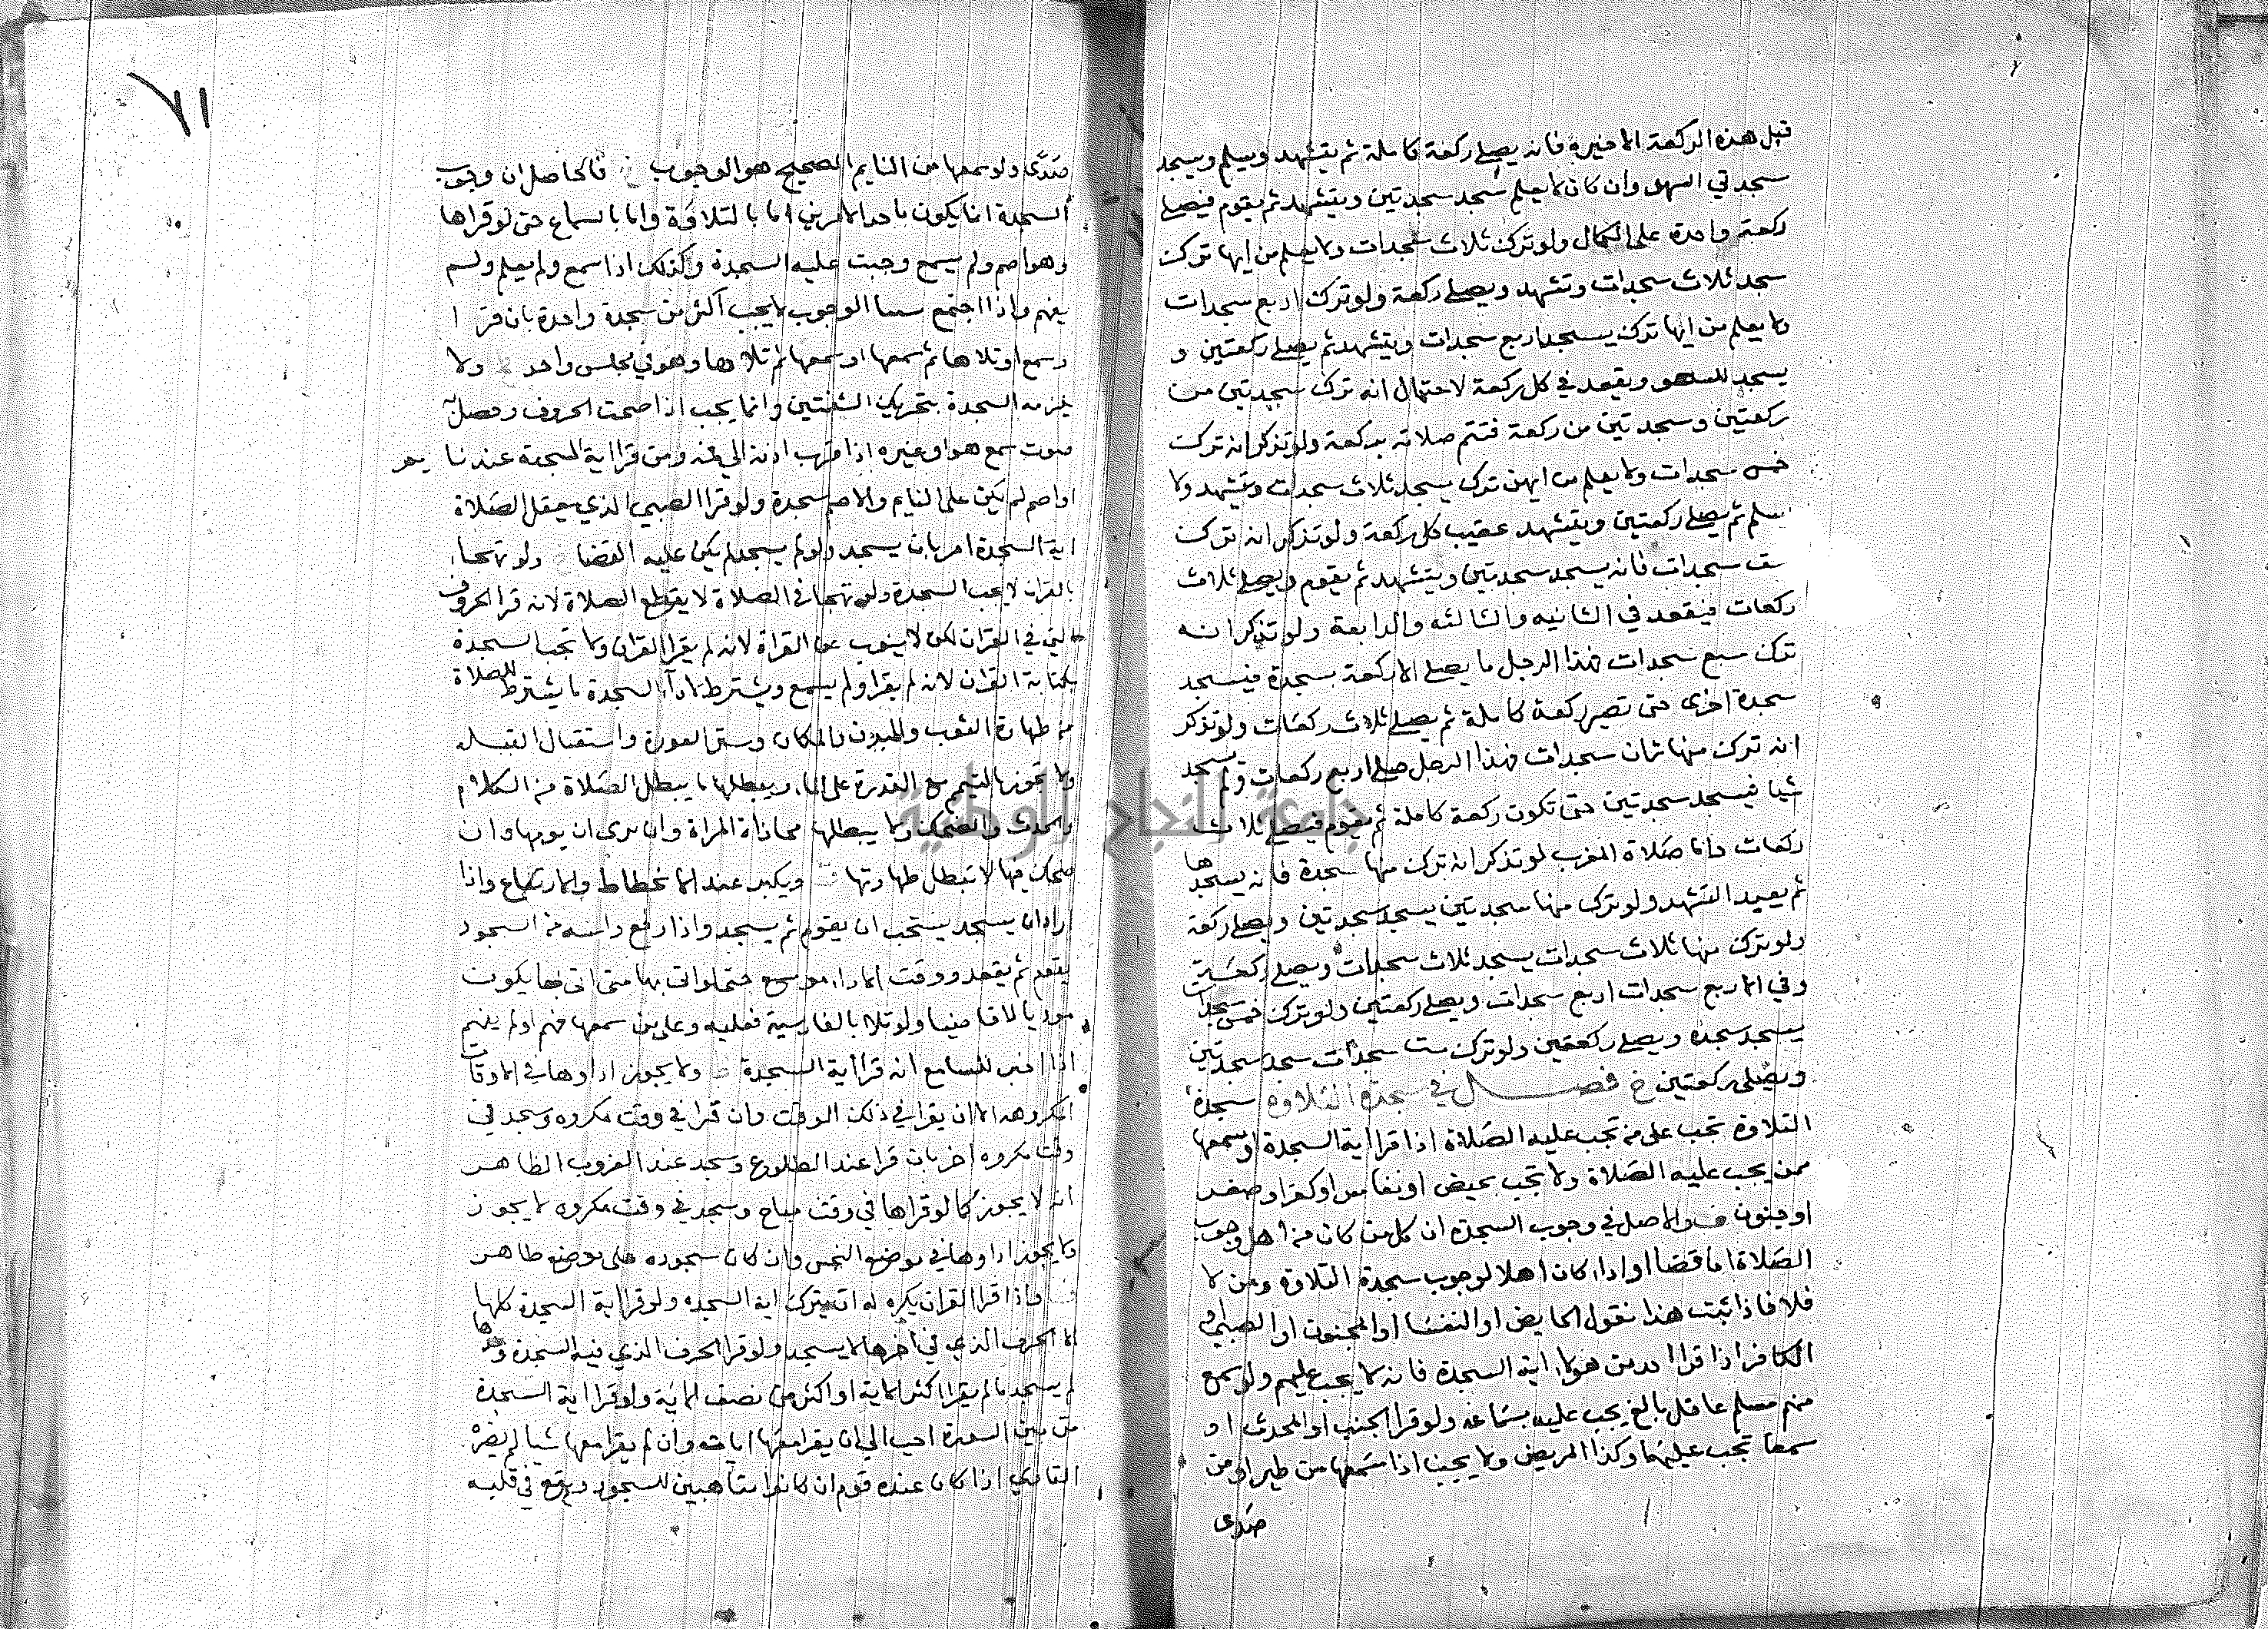 قبل هذه الركعة الاخيرة فانه يصلي ركعة كاملة ثم يتشهد ويسلم ويسجد
سجدتي السهو وان كان لا يعلم سجد سجدتين ويتشهد ثم يقوم فيصلي
ركعة واحدة على الكمال ولو ترك ثلاث سجدات ولا يعلم من ايها تركت
سجد ثلاث سجدات وتشهد ويصلي ركعة ولو ترك اربع سجدات
ولا يعلم من ايها ترك يسجد اربع سجدات ويتشهد ثم يصلي ركعتين و
يسجد للسهو ويقعد في كل ركعة لاحتمال انه ترك سجدتين من
ركعتين وسجدتين من ركعة فتتم صلاته بركعة ولو تذكر انه ترك
خمس سجدات ولا يعلم من ايهن ترك يسجد ثلاث سجدات ويتشهد ولا
يسلم ثم يصلي ركعتين ويتشهد عقيب كل ركعة ولو تذكر انه ترك
ست سجدات فانه يسجد سجدتين ويتشهد ثم يقوم ويصلي ثلاث
ركعات فيقعد في الثانيه والثالثه والرابعة ولو تذكر انه
ترك سبع سجدات فهذا الرجل ما يصلي الا ركعة بسجدة فيسجد
سجدة اخرى حتى تصير ركعة كاملة ثم يصلي ثلاث ركعات ولو تذكر
انه ترك منها ثمان سجدات فهذا الرجل صلى اربع ركعات ولم يسجد
شيا فيسجد سجدتين حتى تكون ركعة كاملة ثم يقوم فيصلي ثلاث
ركعات واما صلاة المغرب لو تذكر انه ترك منها سجدة فانه يسجدها
ثم يعيد التشهد ولو ترك منها سجدتين يسجد سجدتين ويصلي ركعة
ولو ترك منها ثلاث سجدات يسجد ثلاث سجدات ويصلي ركعة
وفي الاربع سجدات اربع سجدات ويصلي ركعتين ولو ترك خمس سجدات
يسجد سجدة ويصلي ركعتين ولو ترك ست سجدات سجد سجدتين
ويصلي ركعتين فصل في سجدة التلاوة سجدة
التلاوة تجب على من تجب عليه الصلاة اذا قرا اية السجدة او سمعها
ممن يجب عليه الصلاة ولا تجب بحيض او نفاس او كفر او صغر
او جنون والاصل في وجوب السجدة ان كل من كان من اهل وجوب
الصلاة اما قضا او ادا كان اهلا لوجوب سجدة التلاوة ومن لا
فلا فاذا ثبت هذا نقول الحايض او النفسا او المجنون او الصبي او
الكافر اذا قرا احد من هولا اية السجدة فانه لا يجب عليهم ولو سمع
منهم مسلم عاقل بالغ يجب عليه بسماعه ولو قرا الجنب او المحدث او
سمعا تجب عليهما وكذا المريض ولا يجب اذا سمعها من طير او من
صدى
٧١
صدى ولو سمعها من النايم الصحيح هو الوجوب فالحاصل ان وجوب
السجدة انما يكون باحد الامرين اما بالتلاوة واما بالسماع حتى لو قراها
وهو اصم ولم يسمع وجبت عليه السجدة وكذلك اذا سمع ولم يعلم ولم
يفهم واذا اجتمع سببا الوجوب لا يجب اكثر من سجدة واحدة بان قرا
وسمع او تلاها ثم سمعها او سمعها ثم تلاها وهو في مجلس واحد ولا
يلزمه السجدة بتحريك الشفتين وانما يجب اذا صحت الحروف وحصل
صوت سمع هو او غيره اذا قرب اذنه الى فمه ومن قرا اية السجدة عند نايم
او اصم لم يكن على النايم والاصم سجدة ولو قرا الصبي الذي يعقل الصلاة
اية السجدة امر بان يسجد ولو لم يسجد لم يكن عليه القضا ولو تهجا
بالقران لا يجب السجدة ولو تهجا في الصلاة لا يقطع الصلاة لانه قرا الحروف
التي في القران لكن لا ينوب عن القراة لانه لم يقرا القران ولا تجب السجدة
بكتابة القران لانه لم يقرا ولم يسمع ويشترط لادا السجدة ما يشترط للصلاة
من طهارة الثوب والبدن والمكان وستر العورة واستقبال القبلة
ولا تجوز بالتيمم مع القدرة على الماء ويبطلها ما يبطل الصلاة من الكلام
والحدث والضحك ولا يبطلها محاذاة المراة وان نوى ان يومها وان
ضحك فيها لا تبطل طهارتها ويكبر عند الانحطاط والارتفاع واذا
اراد ان يسجد يستحب ان يقوم ثم يسجد واذا رفع راسه من السجود
يقوم ثم يقعد ووقت الادا موسع حتى لو اتى بها متى اتى بها يكون
موديا لا قاضيا ولو تلا بالفارسية فعليه وعلى من سمعها فهم او لم يفهم
اذا اخبر للسامع انه قرا اية السجدة ولا يجوز اداوها في الاوقات
المكروهه الا ان يقرا في ذلك الوقت وان قرا في وقت مكروه وسجد في
وقت مكروه اخر بان قرا عند الطلوع وسجد عند الغروب الظاهر
انه لا يجوز كما لو قراها في وقت مباح وسجد في وقت مكروه لا يجوز
ولا يجوز اداوها في موضع النجس وان كان سجوده على موضع طاهر
واذا قرا القران يكره له ان يترك اية السجدة ولو قرا اية السجدة كلها
الا الحرف الذي في اخرها لا يسجد ولو قرا الحرف الذي فيه السجدة وحدها
لم يسجد ما لم يقرا اكثر الاية او اكثر من نصف الاية ولو قرا اية السجدة
من بين السورة احب الي ان يقرا معها ايات وان لم يقرا معها شيا لم يضره
القاري اذا كان عنده قوم ان كانوا متاهبين للسجود ويقع في قلبه
جامعة النجاح الوطنية